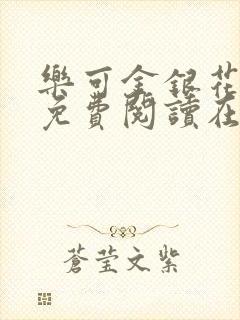 樂可金銀花
免費閱讀在
蒼瑩文紫